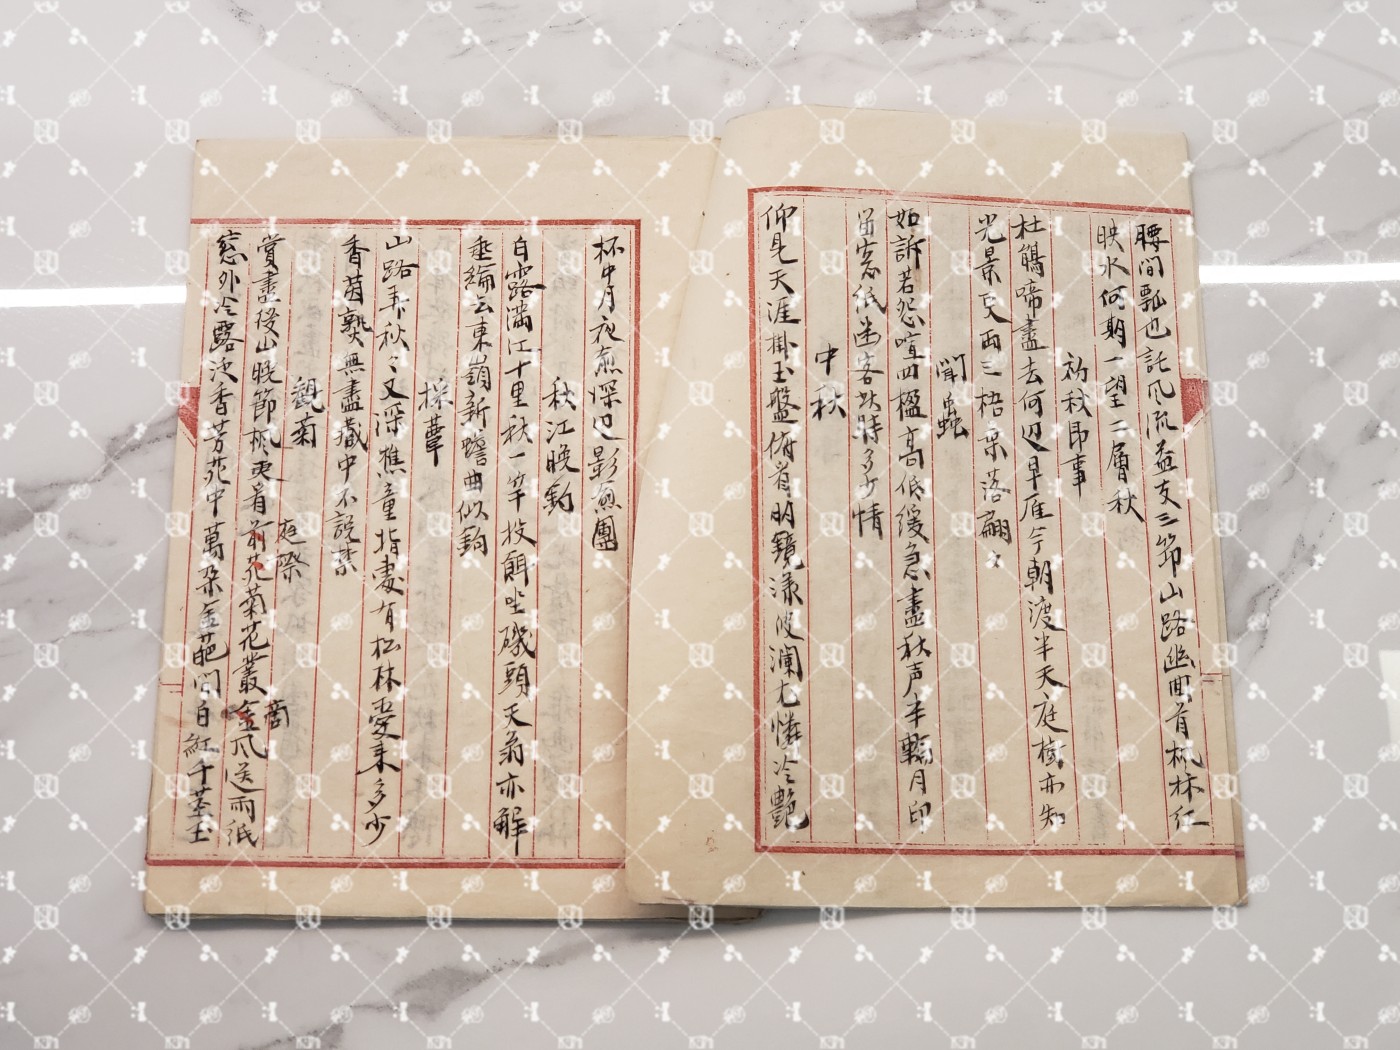 腰間瓢也託風流盃支三節山路幽回首楓林红
映水何期一望二層秋
初秋即事
杜鵑啼盡去何辺早雁今朝渡半天庭樹亦知
光景変両三梧葉落翩々
聞蟲
如訴若怨喧四楹高低緩急盡秋声半輪月印
窓紙幽客此時多少情
中秋
仰見天涯掛玉盤俯看明鏡漾波瀾尤憐冷艶
杯中月夜愈深辺影愈團
秋江晚釣
白露滿江十里秋一竿投餌坐磯頭天翁亦解
垂綸去東嶺新蟾曲似鉤
採蕈
山路弄秋々又深樵童指處有松林愛來多少
香茵熟無盡藏中不説禁
觀菊
庭際
賞盡後山晚節楓更看前花菊花叢金風送雨紙
窓外冷露淡香芳苑中萬朵金葩間白紅千莖玉